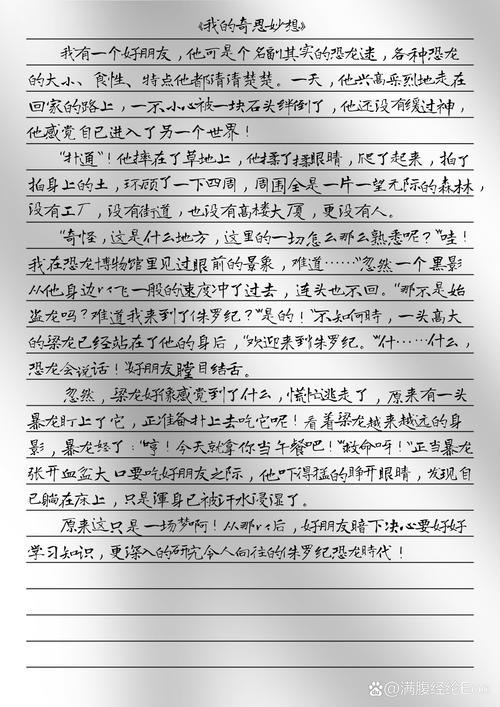 《我的奇思妙想》
我有一个好朋友，他可是个名副其实的恐龙迷，各种恐龙
的大小、食性、特点他都清清楚楚。一天，他兴高采烈地走在
回家的路上，一不小心被一块石头绊倒了，他还没有缓过神，
他感觉自己进入了另一个世界！
“扑通”！他摔在了草地上，他揉了揉眼睛，爬了起来，拍了
拍身上的土，环顾了一下四周，周围全是一片一望无际的森林，
没有工厂，没有街道，也没有高楼大厦，更没有人。
“奇怪，这是什么地方，这里的一切怎么那么熟悉呢？”哇！
我在恐龙博物馆里见过眼前的景象，难道……”忽然一个黑影
从他身边以飞一般的速度冲了过去，连头也不回。“那不是始
盗龙吗？难道我来到了侏罗纪？”是的！”不知何時，一头高大
的梁龙已经站在了他的身后，“欢迎来到侏罗纪。”什……什么，
恐龙会说话！”好朋友瞠目结舌。
忽然，梁龙好像感觉到了什么，慌忙逃走了，原来有一头
暴龙盯上了它，正准备扑上去吃它呢！看着梁龙越来越远的身
影，暴龙怒了：“哼！今天就拿你当午餐吧！”救命呀！”正当暴龙
张开血盆大口要吃好朋友之际，他吓得猛的睁开眼睛，发现自
己躺在床上，只是渾身已被汗水浸湿了。
原来这只是一场梦啊！从那以后，好朋友暗下决心要好好
学习知识，更深入的研究令人向往的侏罗纪恐龙時代！
@满腹经纶E